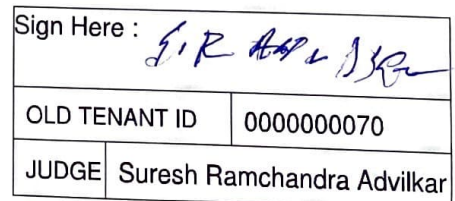 Sign Here : S.R Advilkar
OLD TENANT ID 0000000070
JUDGE Suresh Ramchandra Advilkar